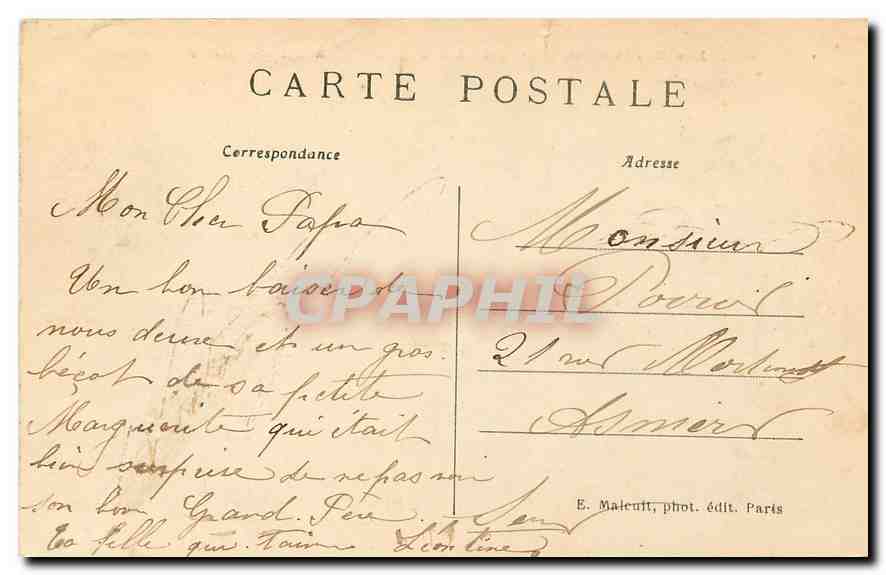 CARTE POSTALE
Correspondance
Adresse
Mon Cher Papa
Un bon baiser de
nous deux et un gros
bécot de sa petite
Marguerite qui était
bien surprise de ne pas voir
son bon Grand Père.
ta fille qui t'aime Léontine
Monsieur
21 rue
Asnières
E. Malcuit, phot. édit. Paris
CPAPHIL